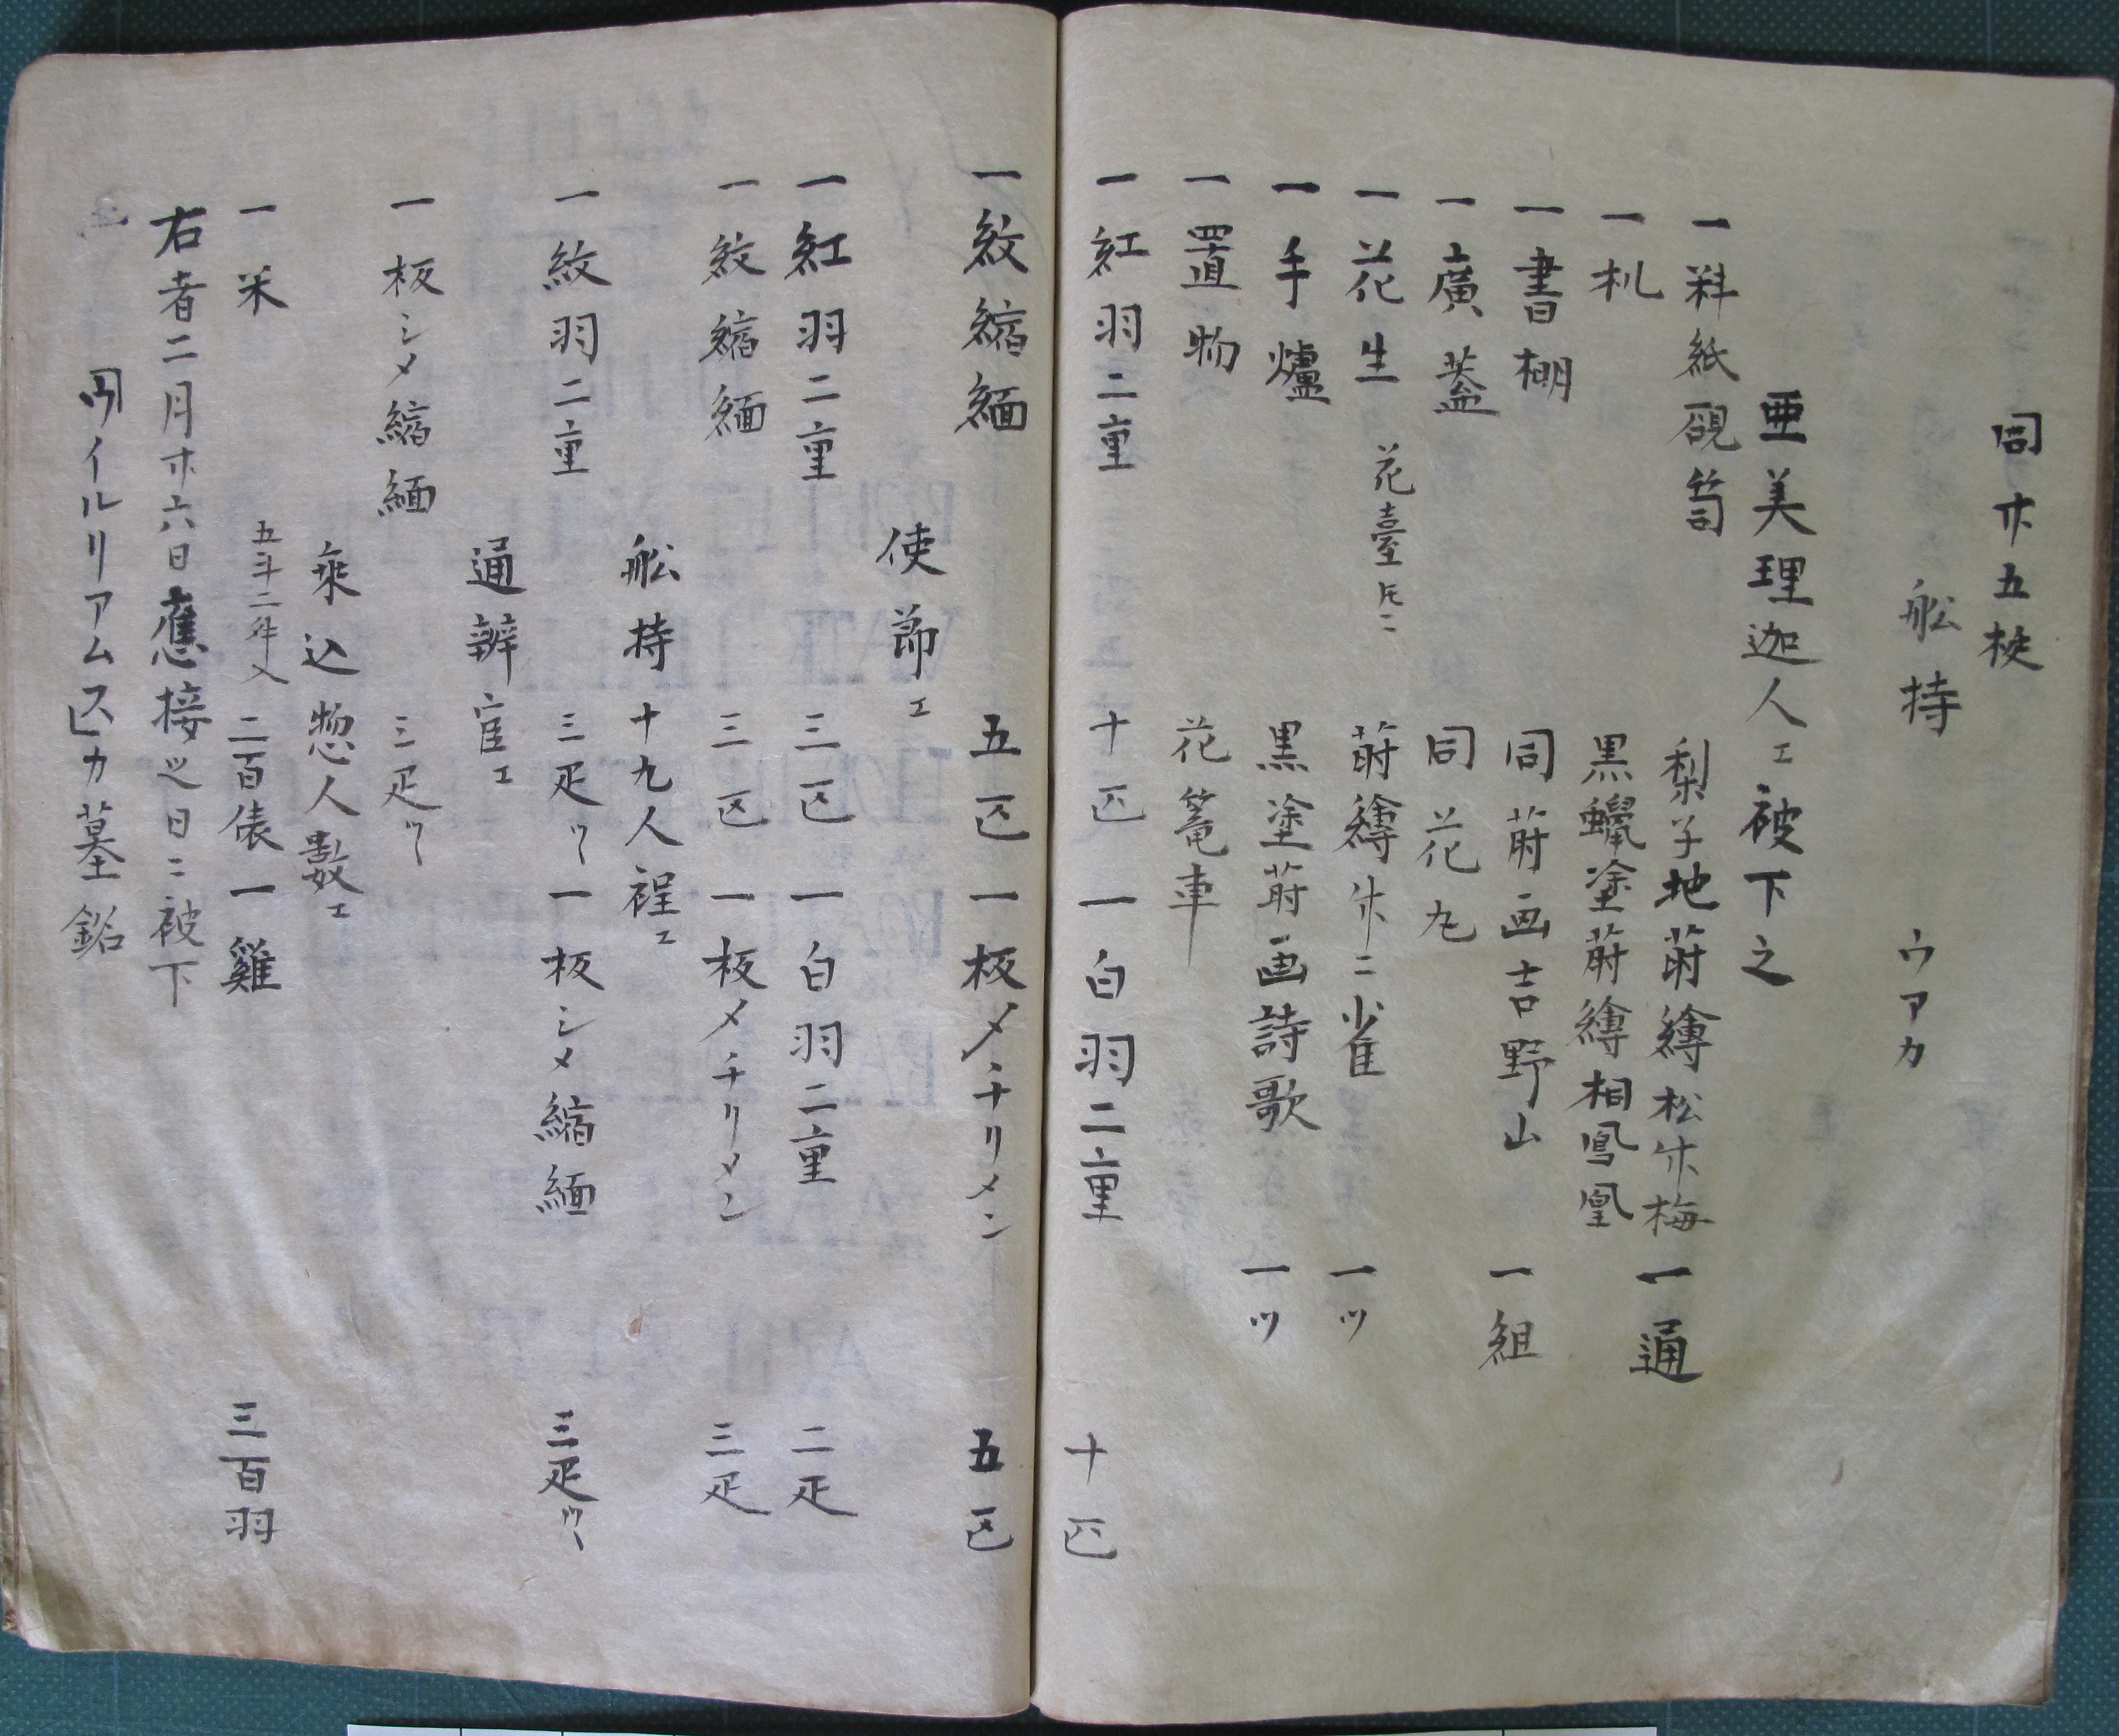 同廿五挺
船持 ウアカ
亜美理迦人エ被下之
一料紙硯筥 梨子地蒔繪松竹梅 一通
一机 黒蠟塗蒔繪桐鳳凰
一書棚 同蒔画吉野山 一組
一廣蓋 同花丸
一花生 花臺圧ニ 蒔繪竹ニ雀 一ツ
一手爐 黒塗蒔画詩歌 一ツ
一置物 花篭車
一紅羽二重 十匹 一白羽二重 十匹
一紋縮緬 五匹 一板〆チリメン 五匹
使節エ
一紅羽二重 三匹 一白羽二重 二疋
一紋縮緬 三匹 一板メチリメン 三疋
船持十九人程エ
一紋羽二重 三疋ツヽ 一板シメ縮緬 三疋ツヽ
通辨官エ
一板シメ縮緬 三疋ツヽ
乗込惣人數エ
一米 五斗二升入 二百俵 一雞 三百羽
右者二月廿六日應接之日ニ被下
ウイルリアムスカ墓銘